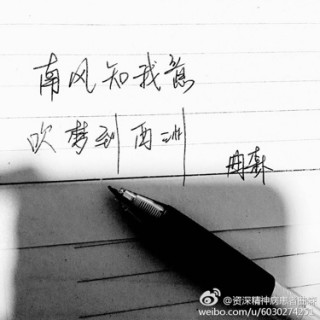 南风知我意
吹梦到西洲
@资深精神病患者
weibo.com/u/6030274221